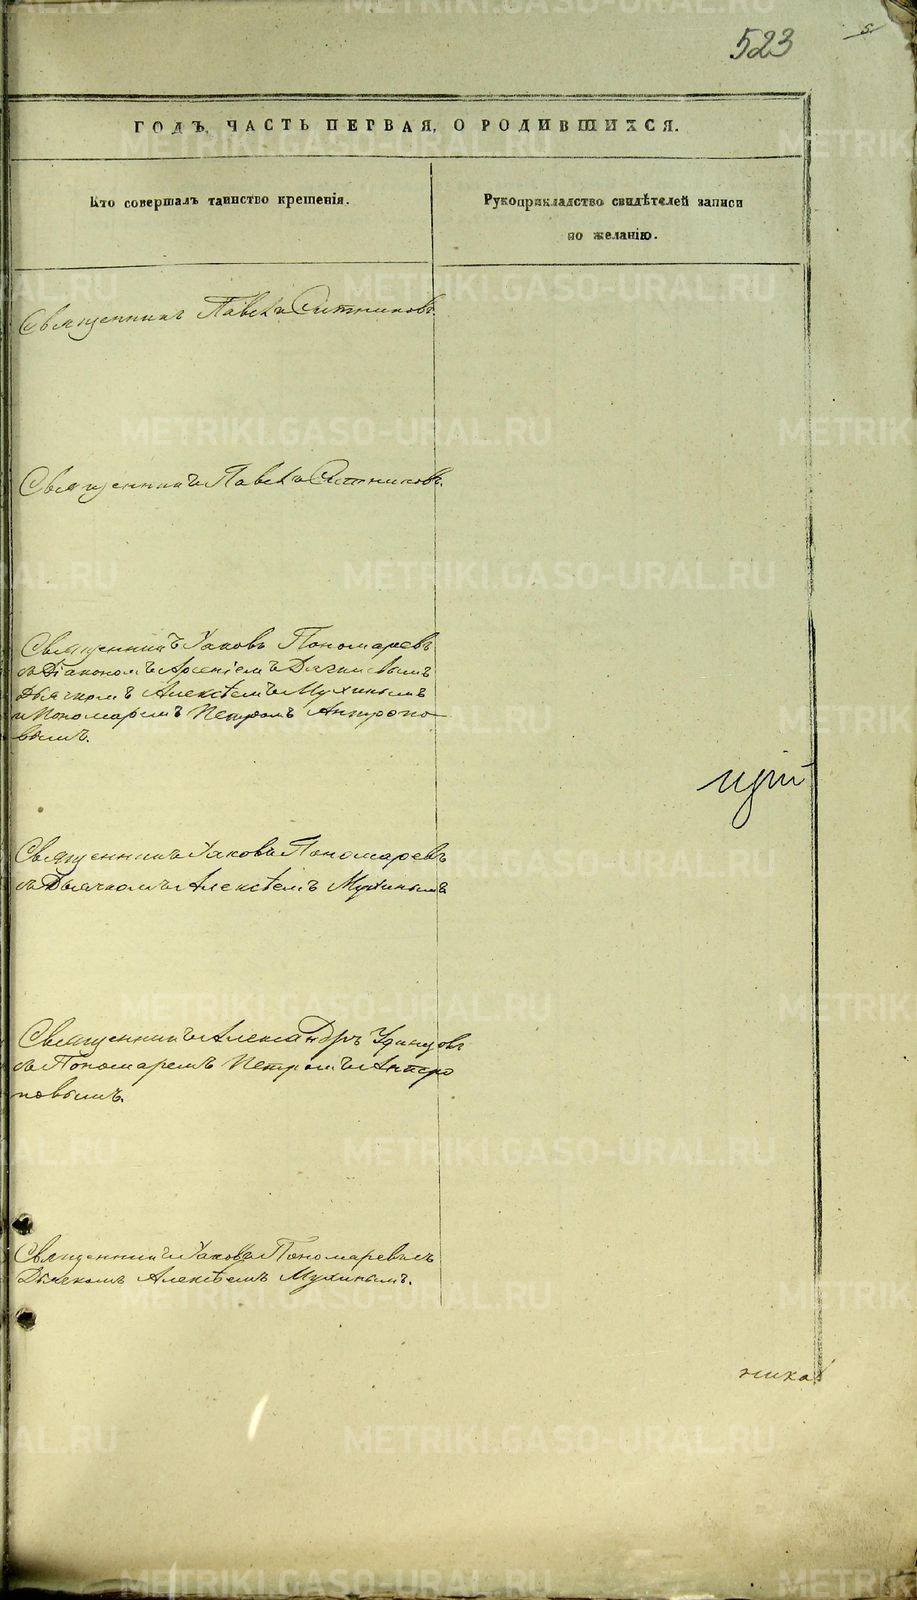 523
5.
ГОДЪ, ЧАСТЬ ПЕРВАЯ, О РОДИВШИХСЯ.
Кто совершалъ таинство крещенія.
Рукоприкладство свидѣтелей записи
по желанію.
Священникъ Павелъ Ситниковъ.
Священникъ Павелъ Ситниковъ.
Священникъ Іаковъ Пономаревъ
съ Діакономъ Арсеніемъ
Дьячкомъ Алексѣемъ Мухинымъ
и Пономаремъ Петромъ Антропо-
вымъ.
Священникъ Іаковъ Пономаревъ
съ Дьячкомъ Алексѣемъ Мухинымъ
Священникъ Александръ Удинцовъ
съ Пономаремъ Петромъ Антро
повымъ.
Священникъ Іаковъ Пономаревъ съ
Дьячкомъ Алексѣемъ Мухинымъ.
ника
METRIKI.GASO-URAL.RU